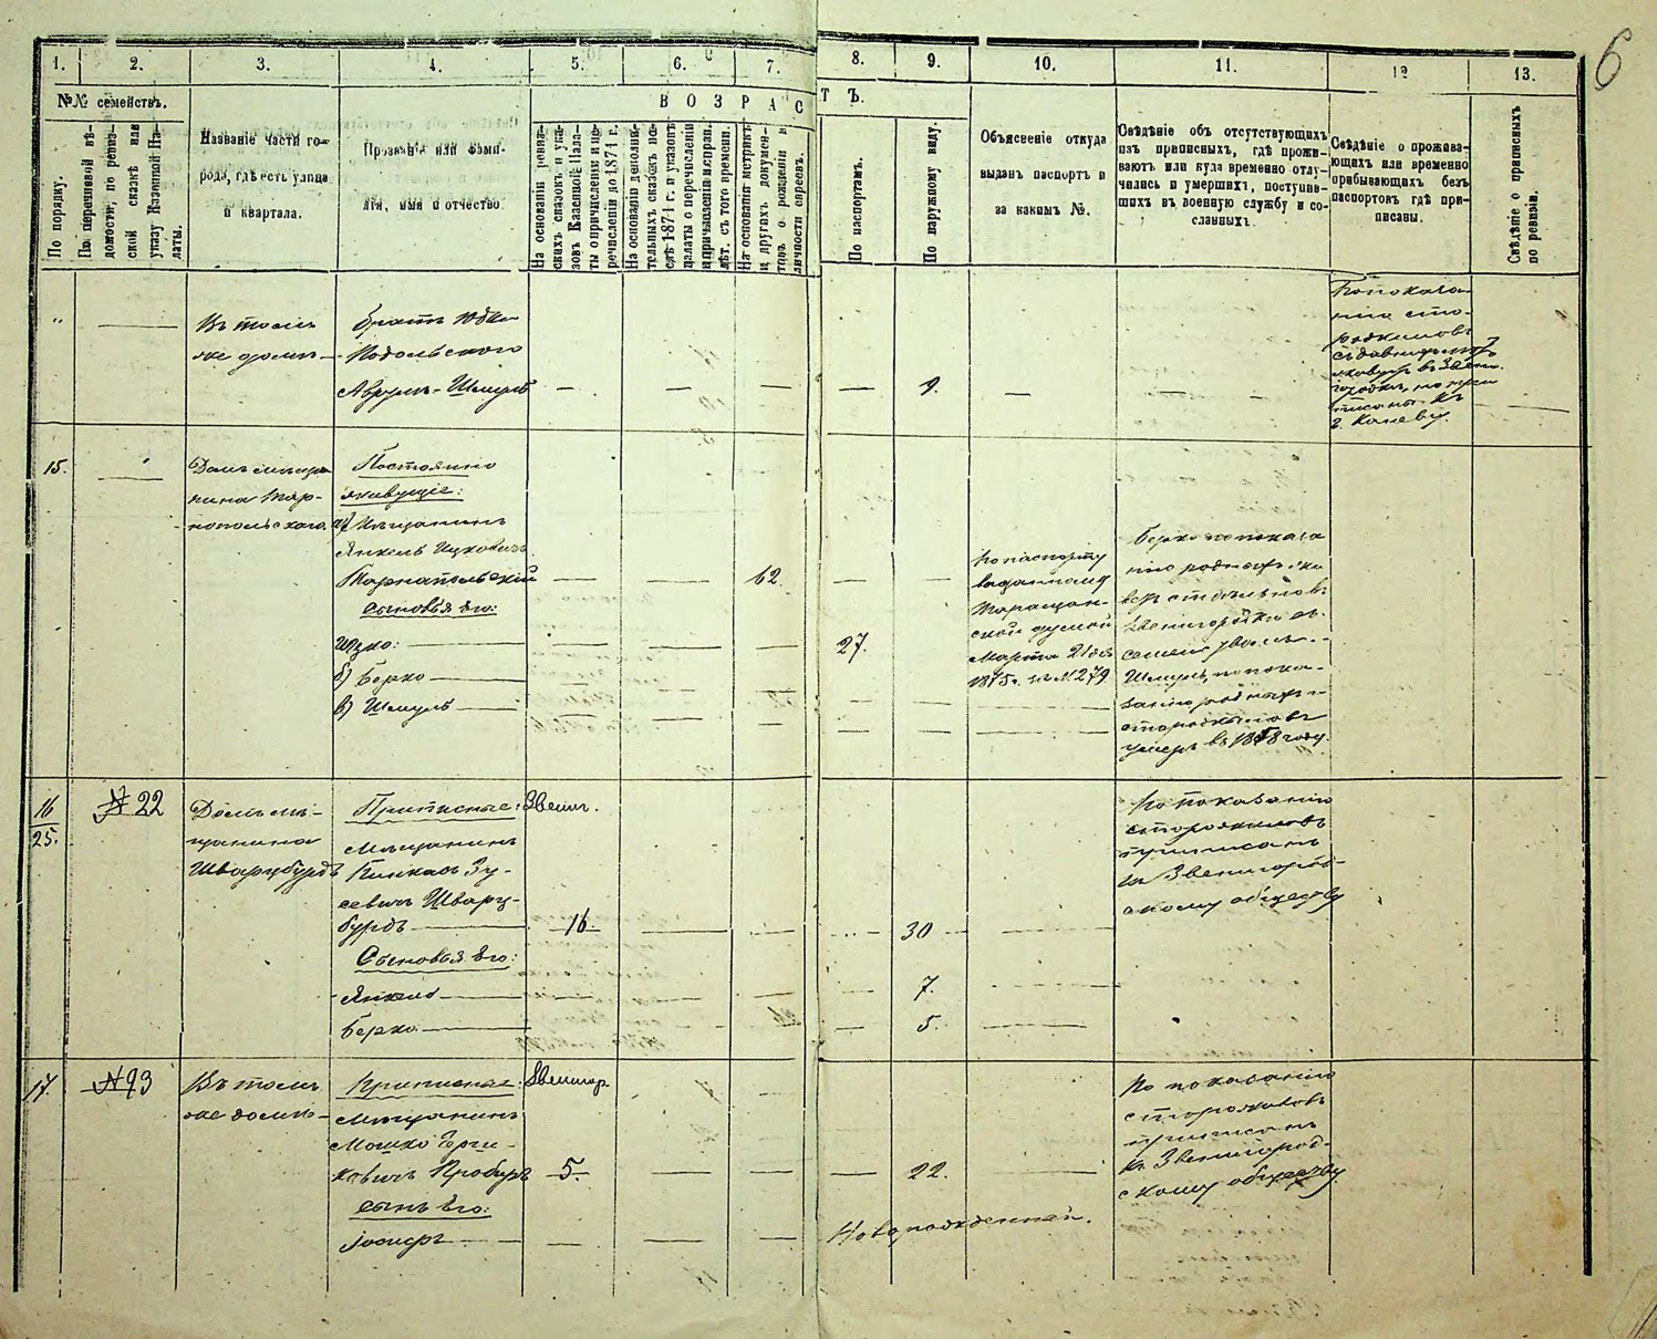 6
1. 2. 3. 4. 5. 6. 7. 8. 9. 10. 11. 12 13.
№№ семействъ.
ВОЗРАСТЪ.
По порядку.
По перечневой вѣ-
домости, по ревиз-
ской сказкѣ или
указу Казенной Па-
латы.
Названіе части го-
рода, гдѣ есть улица
и квартала.
Прозваніе или фами-
лія, имя и отчество
На основаніи ревиз-
скихъ сказокъ и ука-
зовъ Казенной Пала-
ты о причисленіи и пе-
речисленіи до 1874 г.
На основаніи дополни-
тельныхъ сказокъ по-
слѣ 1874 г. и указовъ
палаты о перечисленіи
и причисленіи и исправ.
лѣт. съ того времени.
На основаніи метрикъ
и другихъ докумен-
товъ о рожденіи и
личности евреевъ.
По паспортамъ.
По наружному виду.
Объясненіе откуда
выданъ паспортъ и
за какимъ №.
Свѣдѣніе объ отсутствующихъ
изъ приписныхъ, гдѣ прожи-
ваютъ или куда временно отлу-
чились и умершихъ, поступив-
шихъ въ военную службу и со-
сланныхъ
Свѣдѣніе о прожива-
ющихъ или временно
прибывающихъ безъ
паспортовъ гдѣ при-
писаны.
Свѣдѣніе о приписныхъ
по ревизіи.
"
Въ томъ
же домѣ
братъ Юдки
Подольского
Аврумъ-Шмуль
9.
По показа-
нію сто-
рожиловъ
съ давнихъ
живутъ въ Звени-
городкѣ, но при
писаны къ
г. Каневу.
15.
Домъ мѣща
нина Тар-
нопольскаго
Постоянно
живущіе:
а) Мѣщанинъ
Янкель Ицковичъ
Тарнапольскій
62
сыновья его:
Ицко:
27.
б) Берко
в) Шмуль
по паспорту
выданному
Таращан-
ской думой
Марта 21 дня
1875 г. за №279
Берко по показа
нію родныхъ жи
ветъ отдѣльно въ
Звенигородкѣ съ
семьей
Шмуль, по пока-
занію родныхъ и
сторожиловъ
умеръ въ 1878 году.
16
25.
№ 22
Домъ мѣ-
щанина
Шварцбурдъ
Приписные: Звениг.
Мѣщанинъ
Пинкасъ Зу-
севичъ Шварц-
бурдъ
16.
30
Сыновья его:
Янкель
7.
Берко
5.
По показанію
сторожиловъ
приписанъ
къ Звенигород-
скому обществу
17.
№93
Въ томъ
же домѣ
Приписные: Звенигор.
Мѣщанинъ
Мошко Герш-
ковичъ Пробиръ
5.
22.
сынъ его:
Іосифъ
Новорожденный.
По показанію
сторожиловъ
приписанъ
къ Звенигород-
скому обществу.